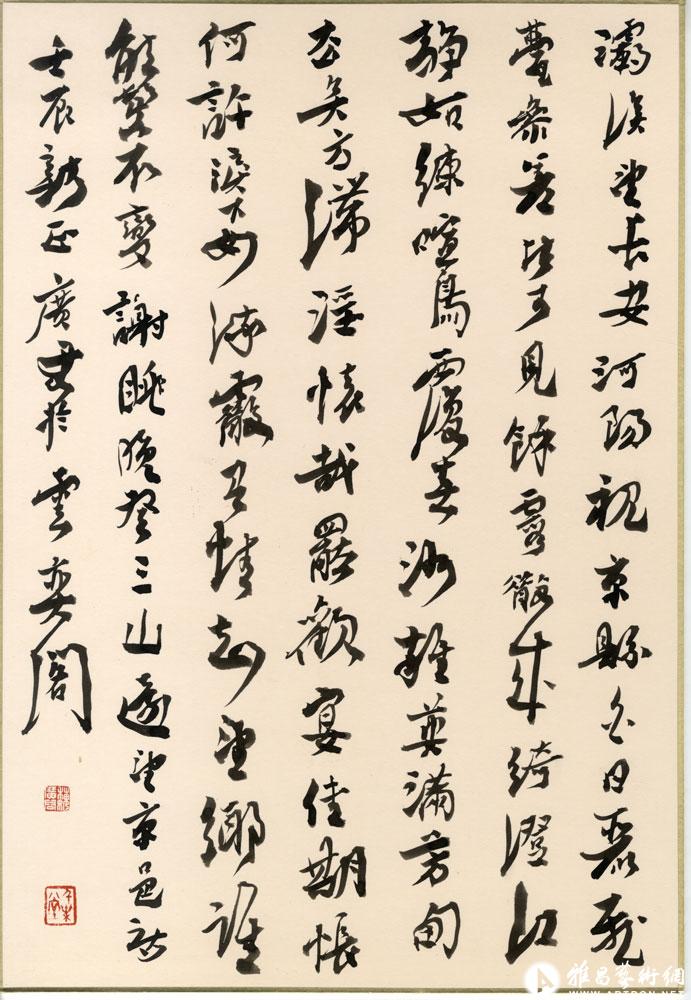 灞涘望長安河陽視京縣白日麗飛
甍參差皆可見餘霞散成綺澄江
靜如練喧鳥覆春洲雜英滿芳甸
去矣方滯淫懷哉罷歡宴佳期悵
何許淚下如流霰有情知望鄉誰
能鬒不變謝朓晚登三山還望京邑詩
壬辰新正廣於雲奕閣
雅昌藝術網